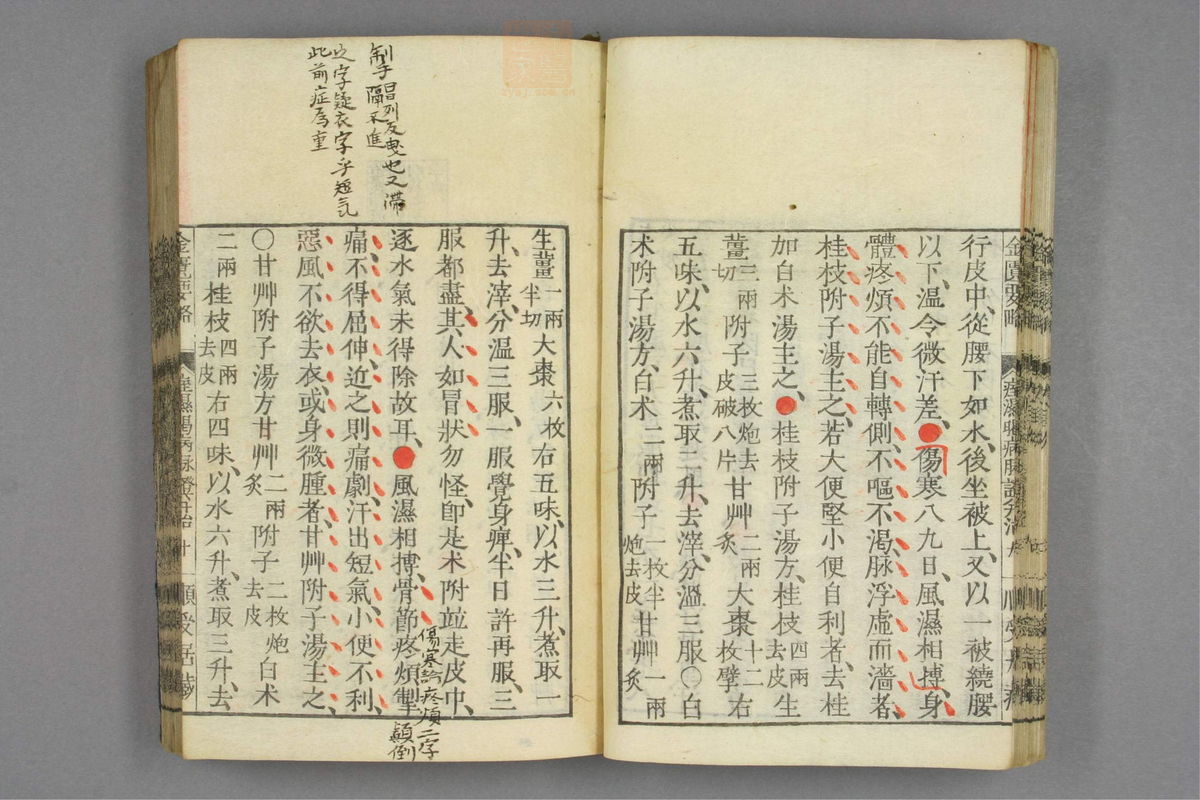 行皮中、從腰下如水、後坐被上、又以一被繞腰
以下、溫令微汗差、●傷寒八九日、風濕相搏、身
體疼煩、不能自轉側、不嘔不渴、脉浮虛而濇者、
桂枝附子湯主之、若大便堅、小便自利者、去桂
加白朮湯主之、●桂枝附子湯方、桂枝四兩去皮生
薑三兩切附子三枚炮去皮破八片甘艸二兩炙大棗十二枚擘右
五味、以水六升、煮取二升、去滓、分溫三服、○白
朮附子湯方、白朮二兩附子一枚半炮去皮甘艸一兩炙
生薑一兩半切大棗六枚右五味、以水三升、煮取一
升、去滓、分溫三服、一服覺身痺、半日許再服、三
服都盡、其人如冒狀、勿怪、卽是朮附竝走皮中、
逐水氣未得除故耳、●風濕相搏、骨節疼煩、掣
痛、不得屈伸、近之則痛劇、汗出短氣、小便不利、
惡風不欲去衣、或身微腫者、甘艸附子湯主之、
○甘艸附子湯方甘艸二兩炙附子二枚炮去皮白朮
二兩桂枝四兩去皮右四味、以水六升、煮取三升、去
金匱要略
痓濕暍病脉證并治
十
掣昌列反曳也又滯
隔不進
之字疑衣字乎短气
此前症爲重
傷寒論疼煩二字
顛倒